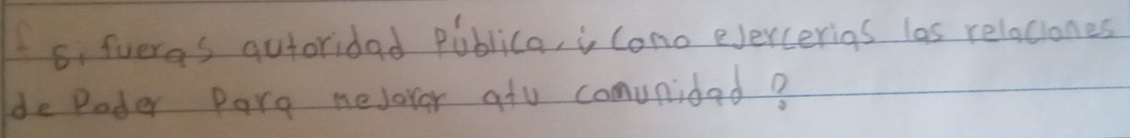 Si fueras autoridad Pública, ¿ Como eJercerias las relaciones
de Poder Para meJorar atu comunidad ?